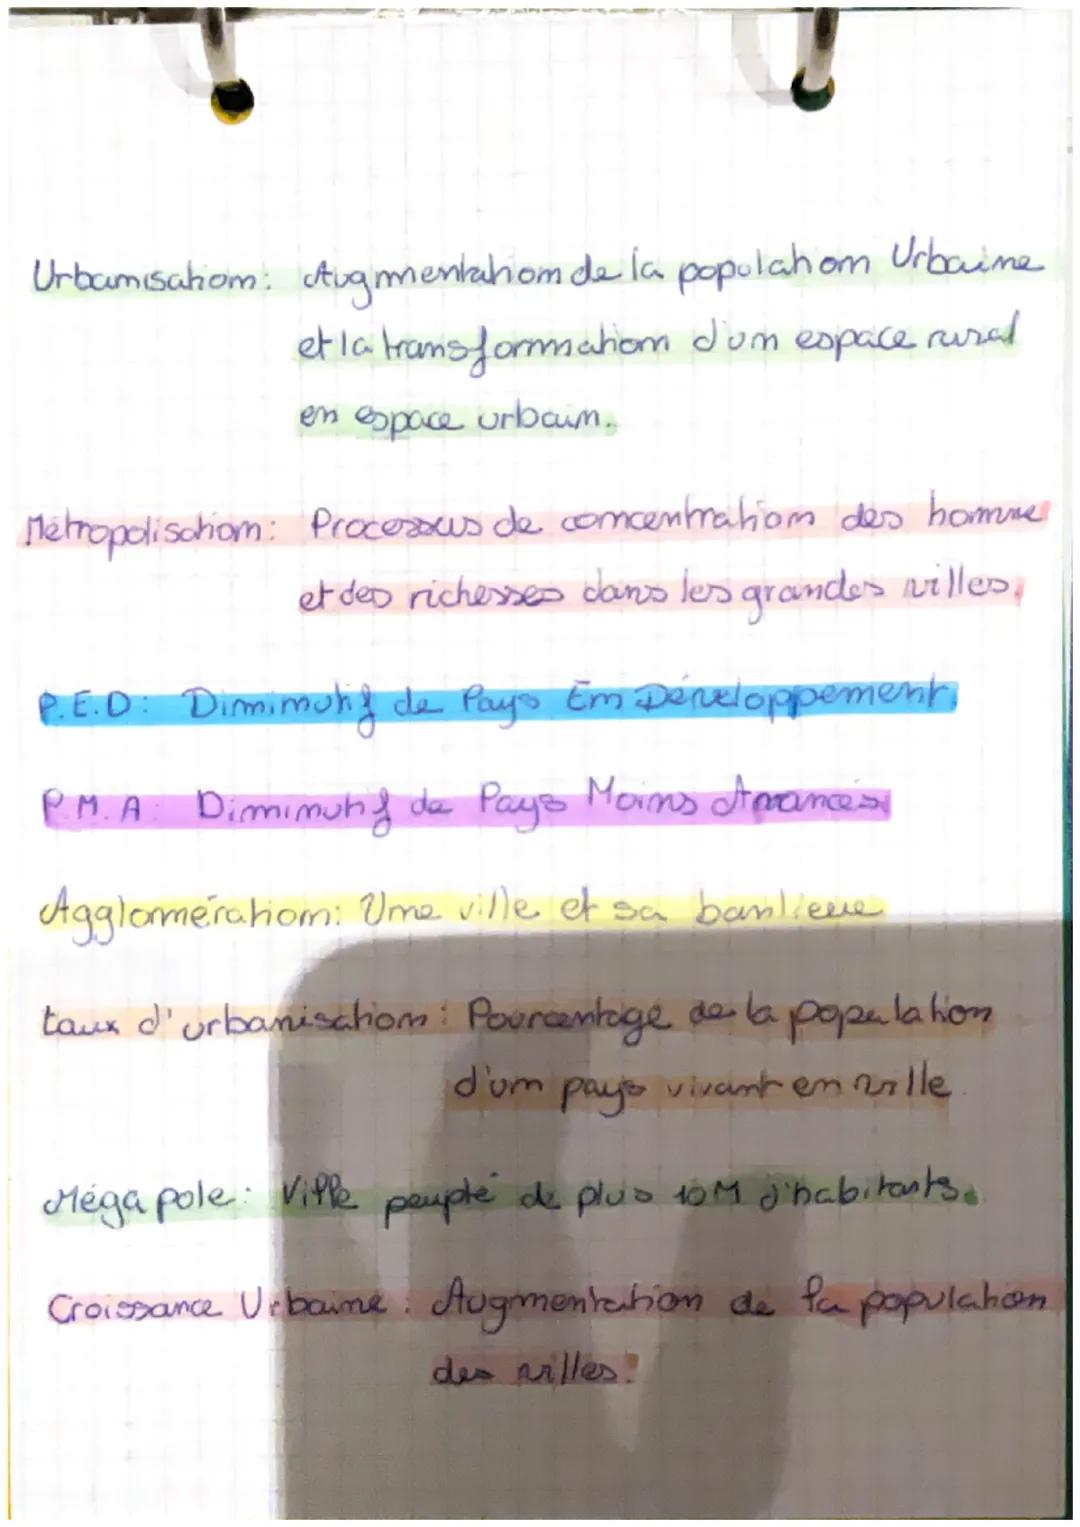 Urbanisation: Augmentation de la population Urbaine
et la transformation d'un espace rural
en espace urbain.
Métropolisation: Processus de concentration des homme
et des richesses dans les grandes villes.
P.E.D: Diminutif de Pays En Développement.
P.M.A: Diminutif de Pays Moins Avancés.
Agglomération: Une ville et sa banlieue
taux d'urbanisation: Pourcentage de la population
d'un pays vivant en ville.
Mégapole: Ville peuplé de plus 10M d'habitants.
Croissance Urbaine: Augmentation de la population
des villes.